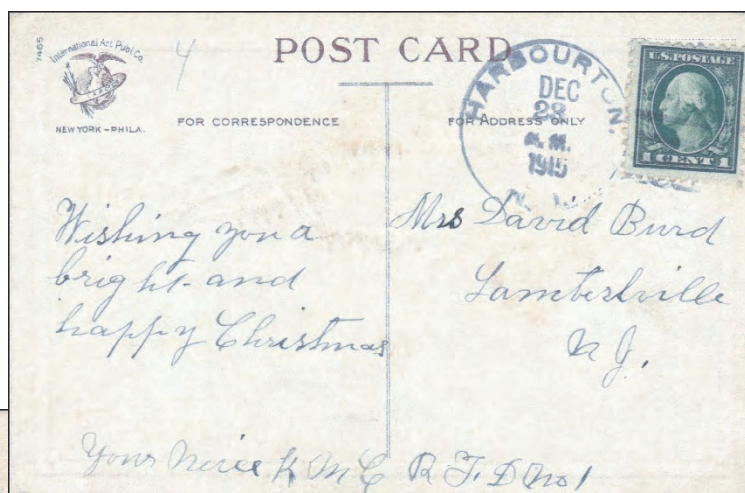 7465
International Art Publ. Co.
NEW YORK - PHILA.
4
POST CARD
FOR CORRESPONDENCE
FOR ADDRESS ONLY
HARBOURTON.
DEC
A.M.
1915
U.S. POSTAGE
1 CENT 1
Wishing you a
bright and
happy Christmas
Mrs David Burd
Lambertville
N J.
Your Neice K M C
R F D No 1